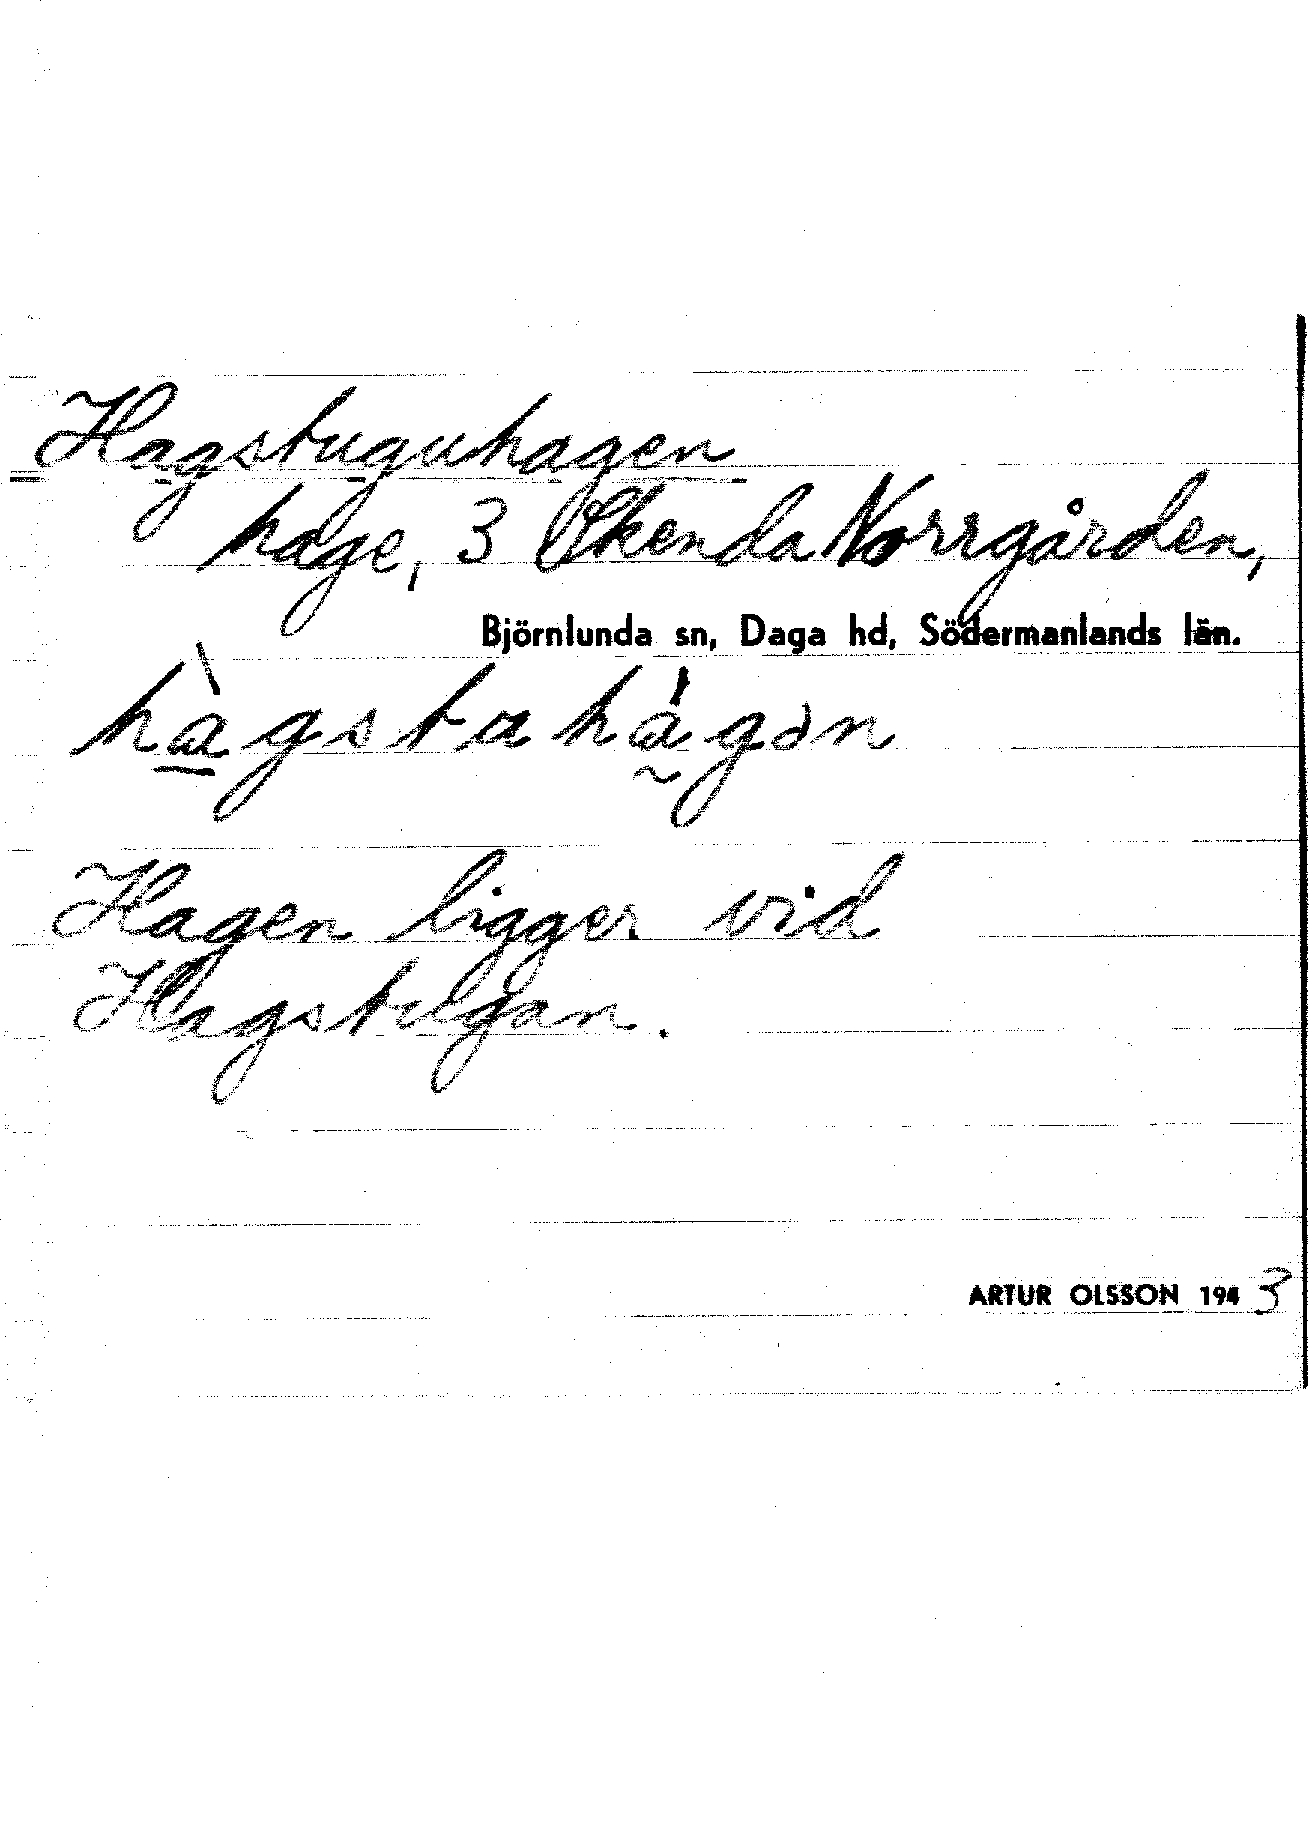 Hagstuguhagen
hage, 3 Skenda Norrgården,
Björnlunda sn, Daga hd, Södermanlands län.
hàgstahàgən
Hagen ligger vid
Hagstugan.
ARTUR OLSSON 1943